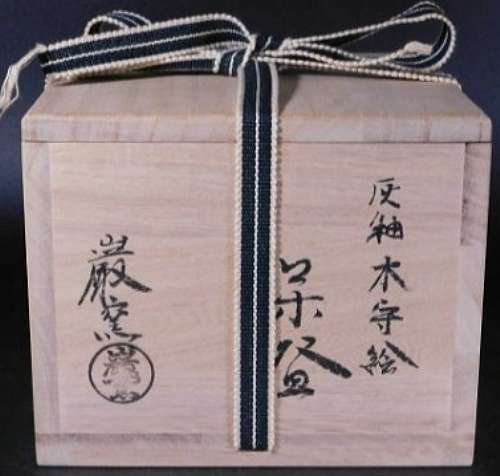 灰釉 木守絵
茶盌
巌窯